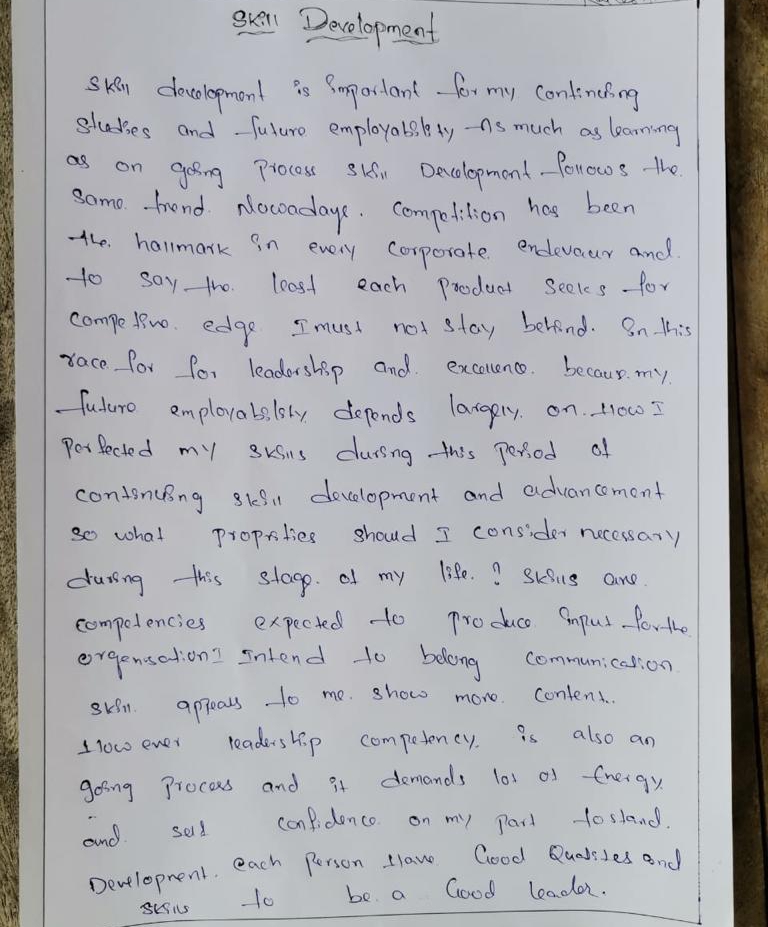 Skill Development
Skill development is important for my continuing
studies and future employability As much as learning
as on going Process skill Development follows the
same trend. Nowadays. competition has been
the hallmark in every corporate endevaur and
to say the least each Product seeks for
competitive edge I must not stay behind. In this
race for for leadership and excellence because my
future employability depends largely on How I
perfected my skills during this period of
continuing skill development and advancement
so what proprities should I consider necessary
during this stage of my life. ? skills and
competencies expected to produce input for the
orgenisation I Intend to belong communication
skill appeals to me show more content..
However leadership competency is also an
going process and it demands lot of Energy
and self confidence on my part to stand.
Development. each person Have Good Qualites and
skills to be a Good leader.